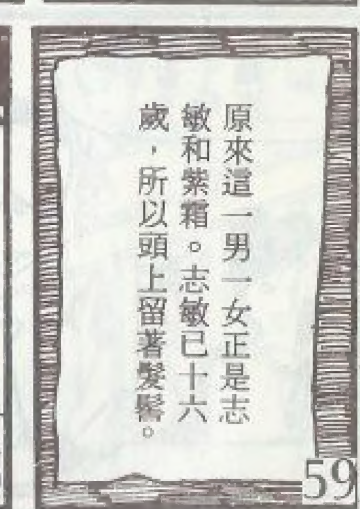 原來這一男一女正是志
敏和紫霜。志敏已十六
歲，所以頭上留著髮髻。
59